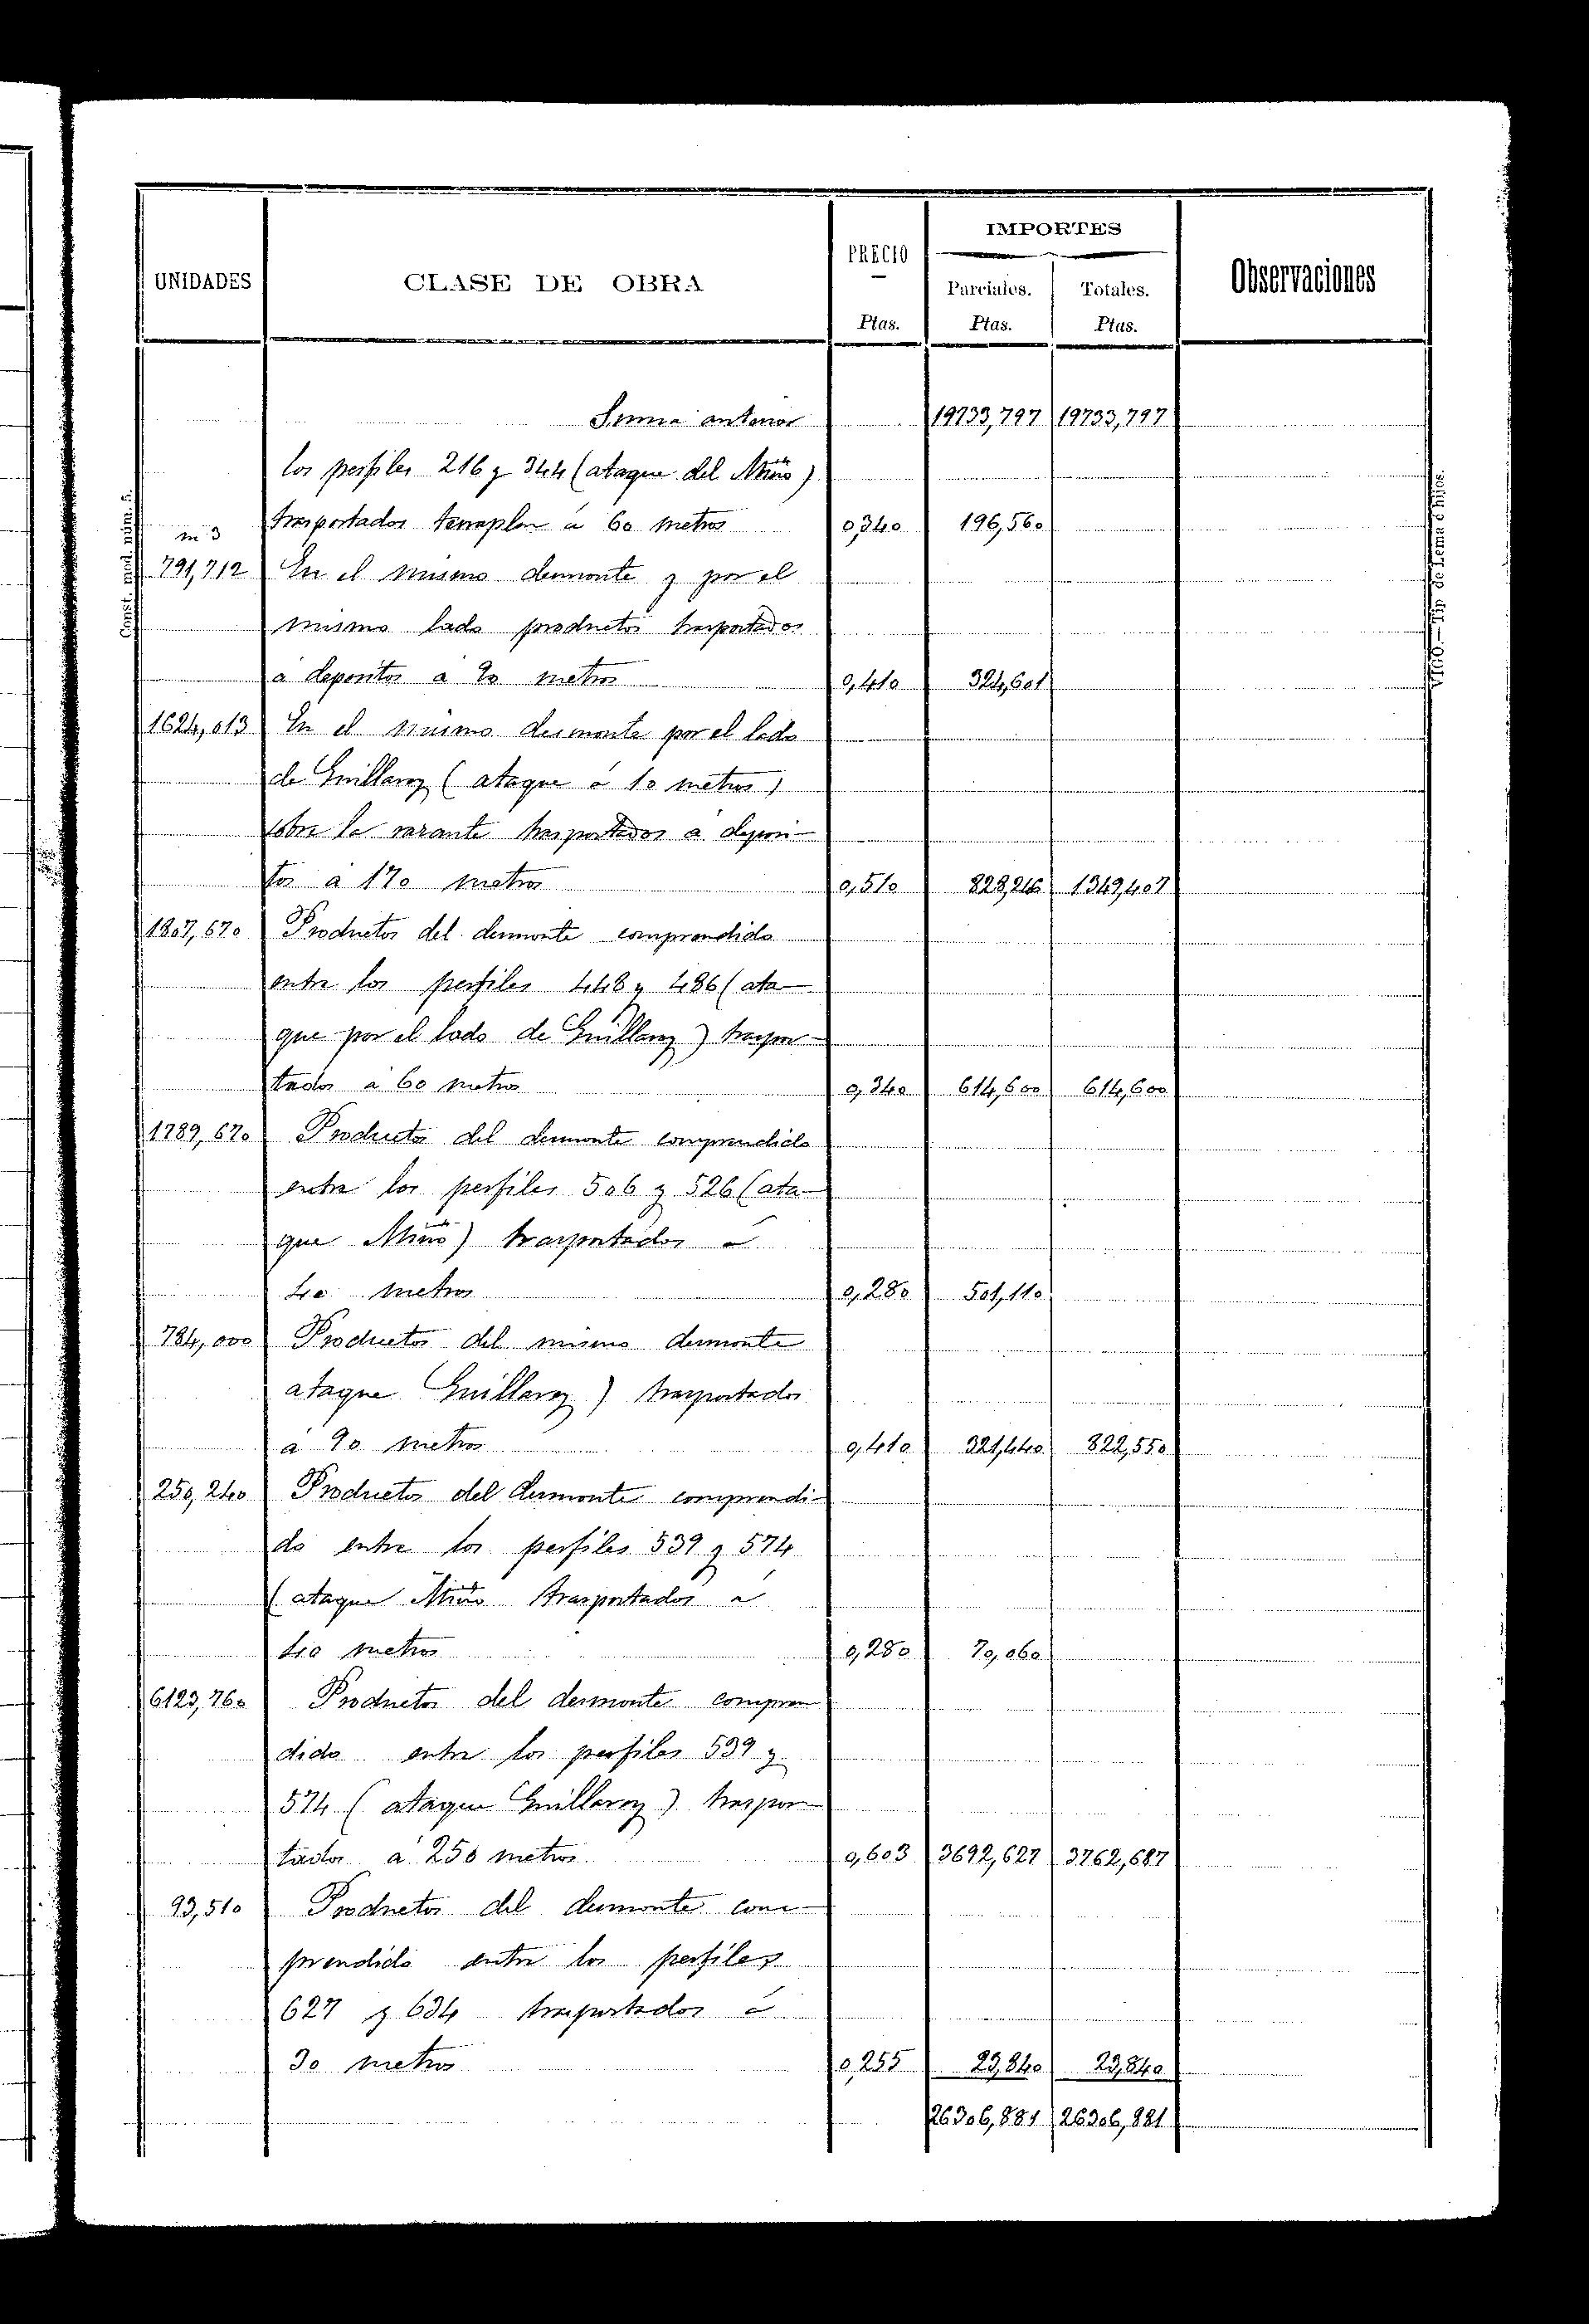 UNIDADES CLASE DE OBRA PRECIO Ptas. IMPORTES Parciales. Ptas. Totales. Ptas. Observaciones
Suma anterior 19733,797 19733,797
los perfiles 216 y 344 (ataque del Miño)
trasportados terraplen á 60 metros 0,340 196,560
m3
791,712 En el mismo desmonte y por el
mismo lado productos trasportados
á depositos á 90 metros 0,410 324,601
1624,013 En el mismo desmonte por el lado
de Guillarey (ataque á 10 metros)
sobre la rasante trasportados á deposi-
tos á 170 metros 0,510 828,246 1349,407
1807,670 Productos del desmonte comprendido
entre los perfiles 448 y 486 (ata-
que por el lado de Guillarey) traspor-
tados á 60 metros 0,340 614,600 614,600
1789,670 Productos del desmonte comprendido
entre los perfiles 506 y 526 (ata-
que Miño) trasportados á
40 metros 0,280 501,110
784,000 Productos del mismo desmonte
ataque Guillarey) trasportados
á 90 metros 0,410 321,440 822,550
250,240 Productos del desmonte comprendi-
do entre los perfiles 539 y 574
(ataque Miño trasportados á
40 metros 0,280 70,060
6123,760 Productos del desmonte compren
dido entre los perfiles 539 y
574 (ataque Guillarey) traspor-
tados á 250 metros 0,603 3692,627 3762,687
93,510 Productos del desmonte com-
prendido entre los perfiles
627 y 634 trasportados á
30 metros 0,255 23,840 23,840
26306,881 26306,881
Const. mod. núm. 5.
VIGO.—Tip. de Lema é hijos.